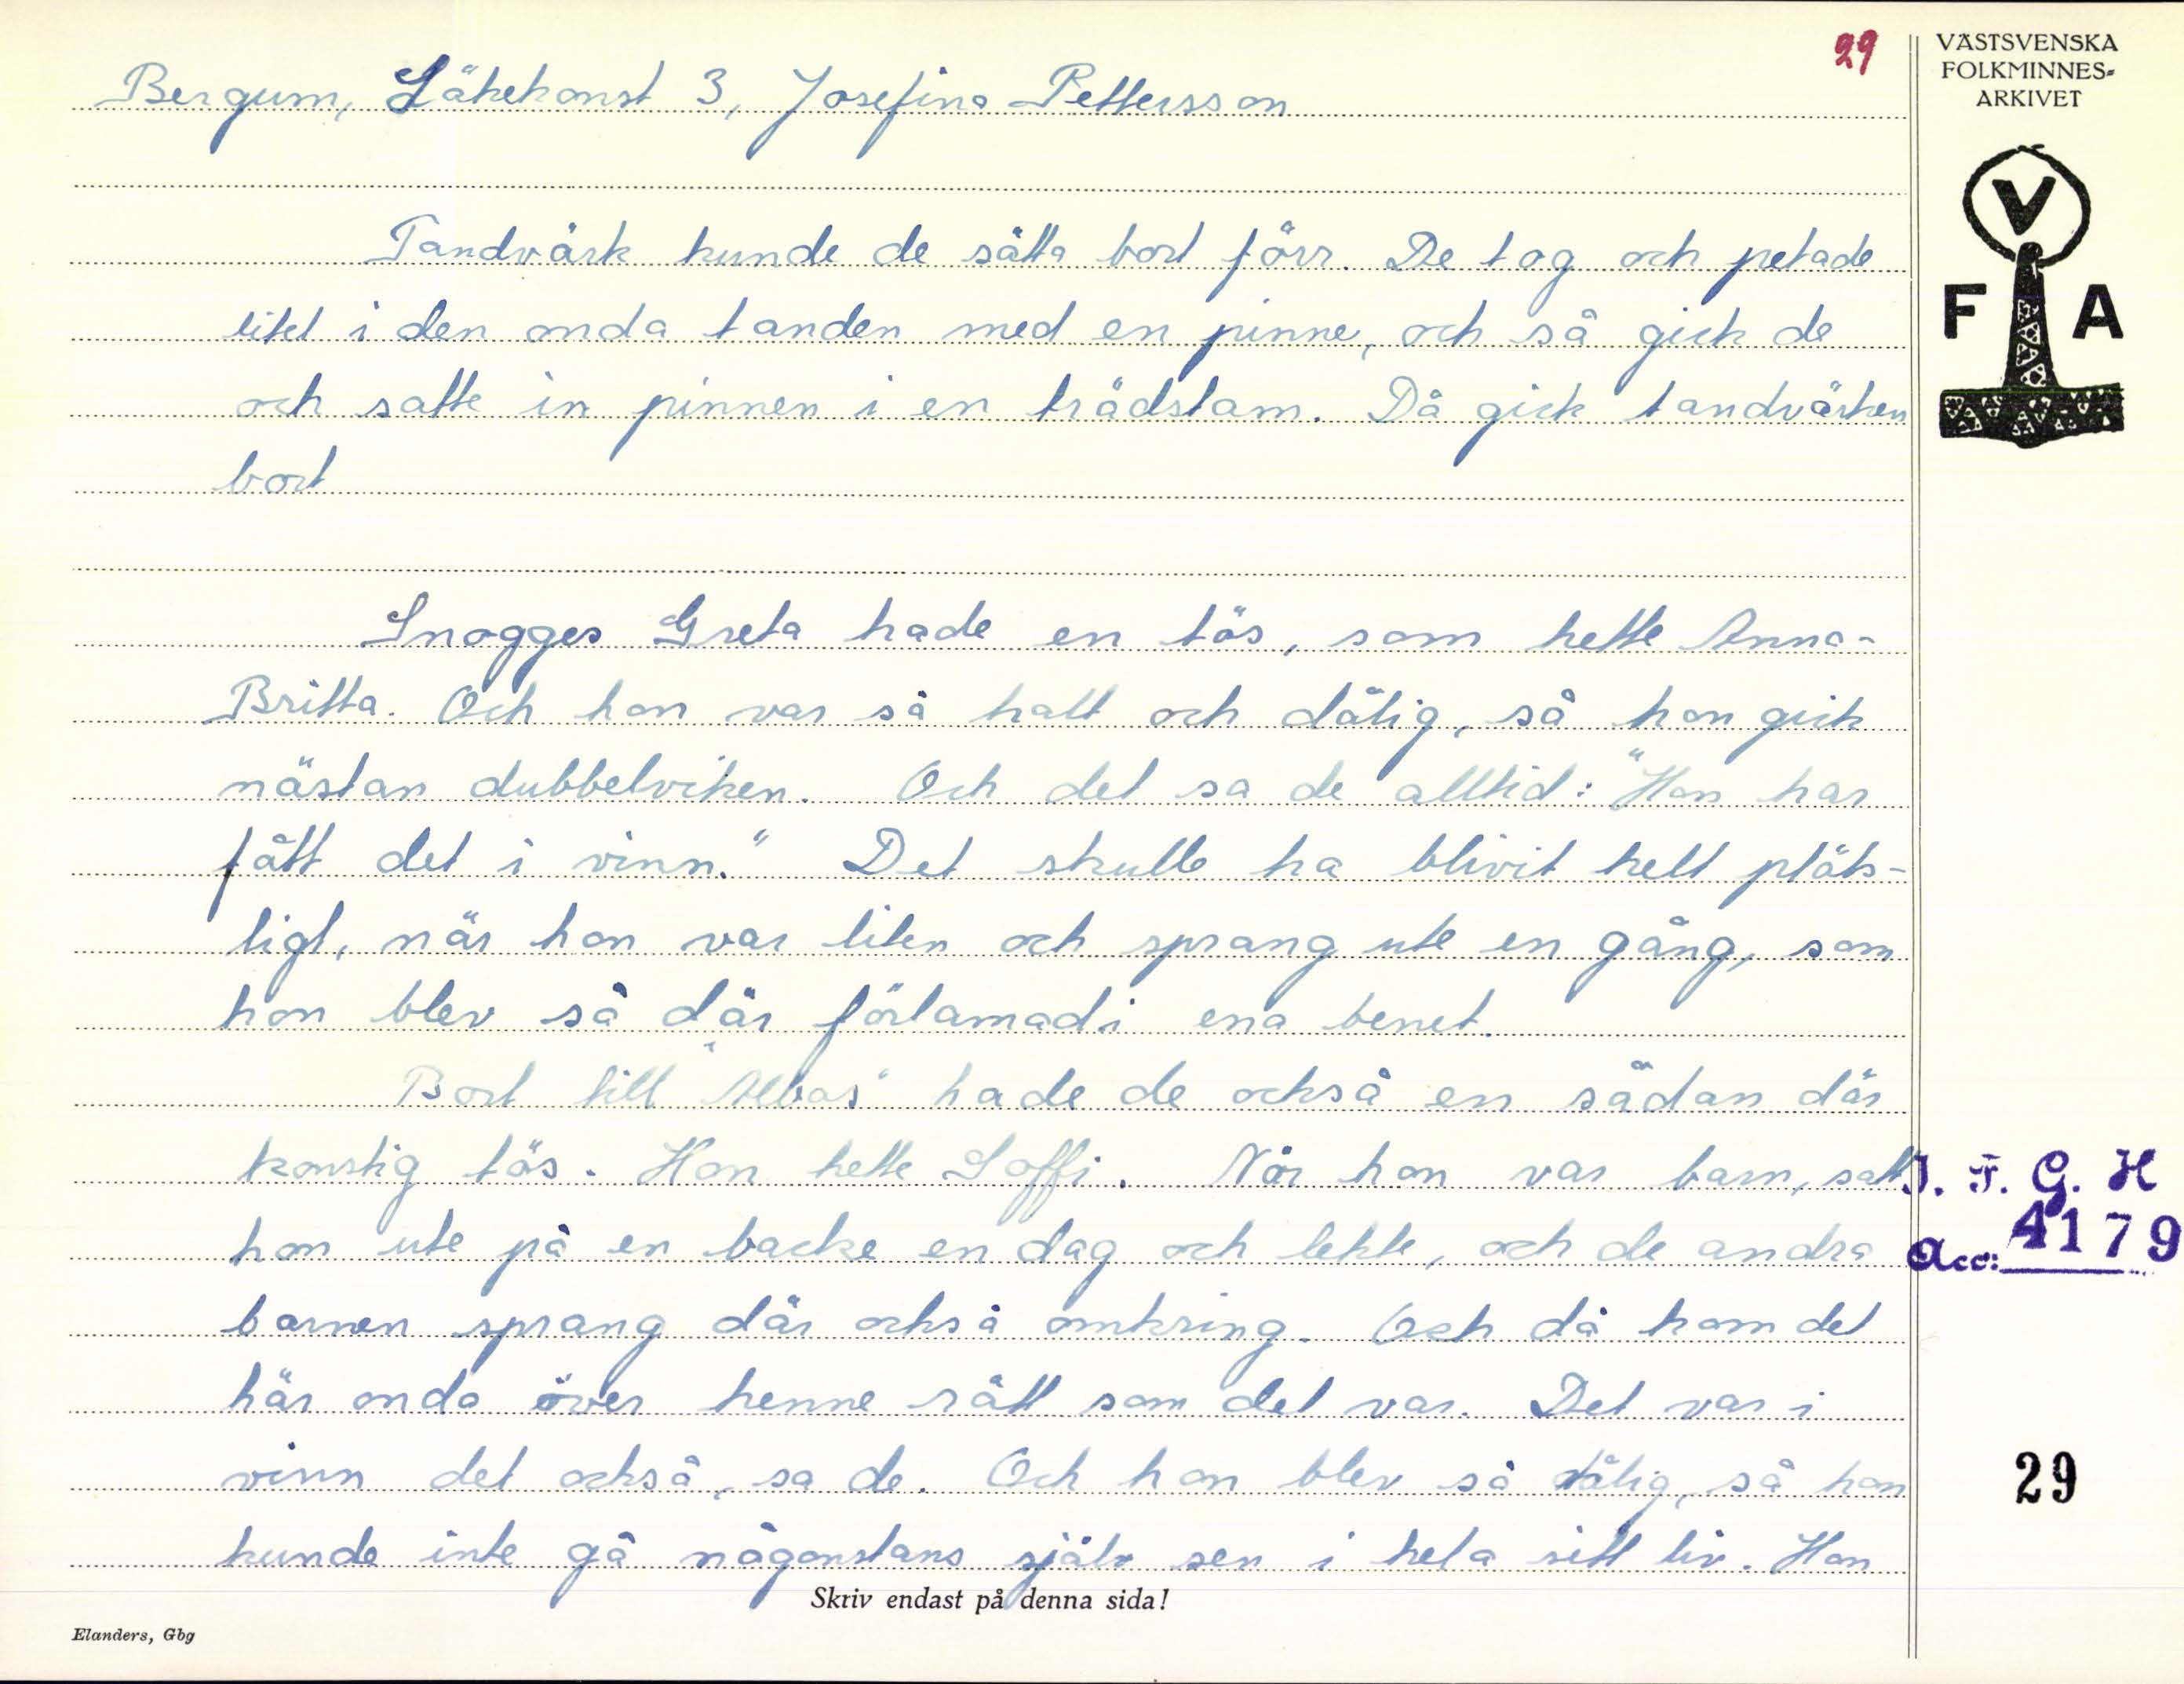 29
VÄSTSVENSKA
FOLKMINNES-
ARKIVET
V
F A
Bergum, Läkekonst 3, Josefina Pettersson
Tandvärk kunde de sätta bort förr. De tog och petade
litet i den onda tanden med en pinne, och så gick de
och satte in pinnen i en trädstam. Då gick tandvärken
bort
Snogges Greta hade en tös, som hette Anna-
Britta. Och hon var så halt och dålig, så hon gick
nästan dubbelviken. Och det sa de alltid: "Hon har
fått det i vinn." Det skulle ha blivit helt plöts-
ligt, när hon var liten och sprang ute en gång, som
hon blev så där förlamad i ena benet.
Bort till "Albas" hade de också en sådan där
konstig tös. Hon hette Soffi. När hon var barn, satt
hon ute på en backe en dag och lekte, och de andra
barnen sprang där också omkring. Och då kom det
här onda över henne rätt som det var. Det var i
vinn det också, sa de. Och hon blev så dålig, så hon
kunde inte gå någonstans själv sen i hela sitt liv. Hon
I. F. G. H
Acc: 4179
29
Skriv endast på denna sida!
Elanders, Gbg